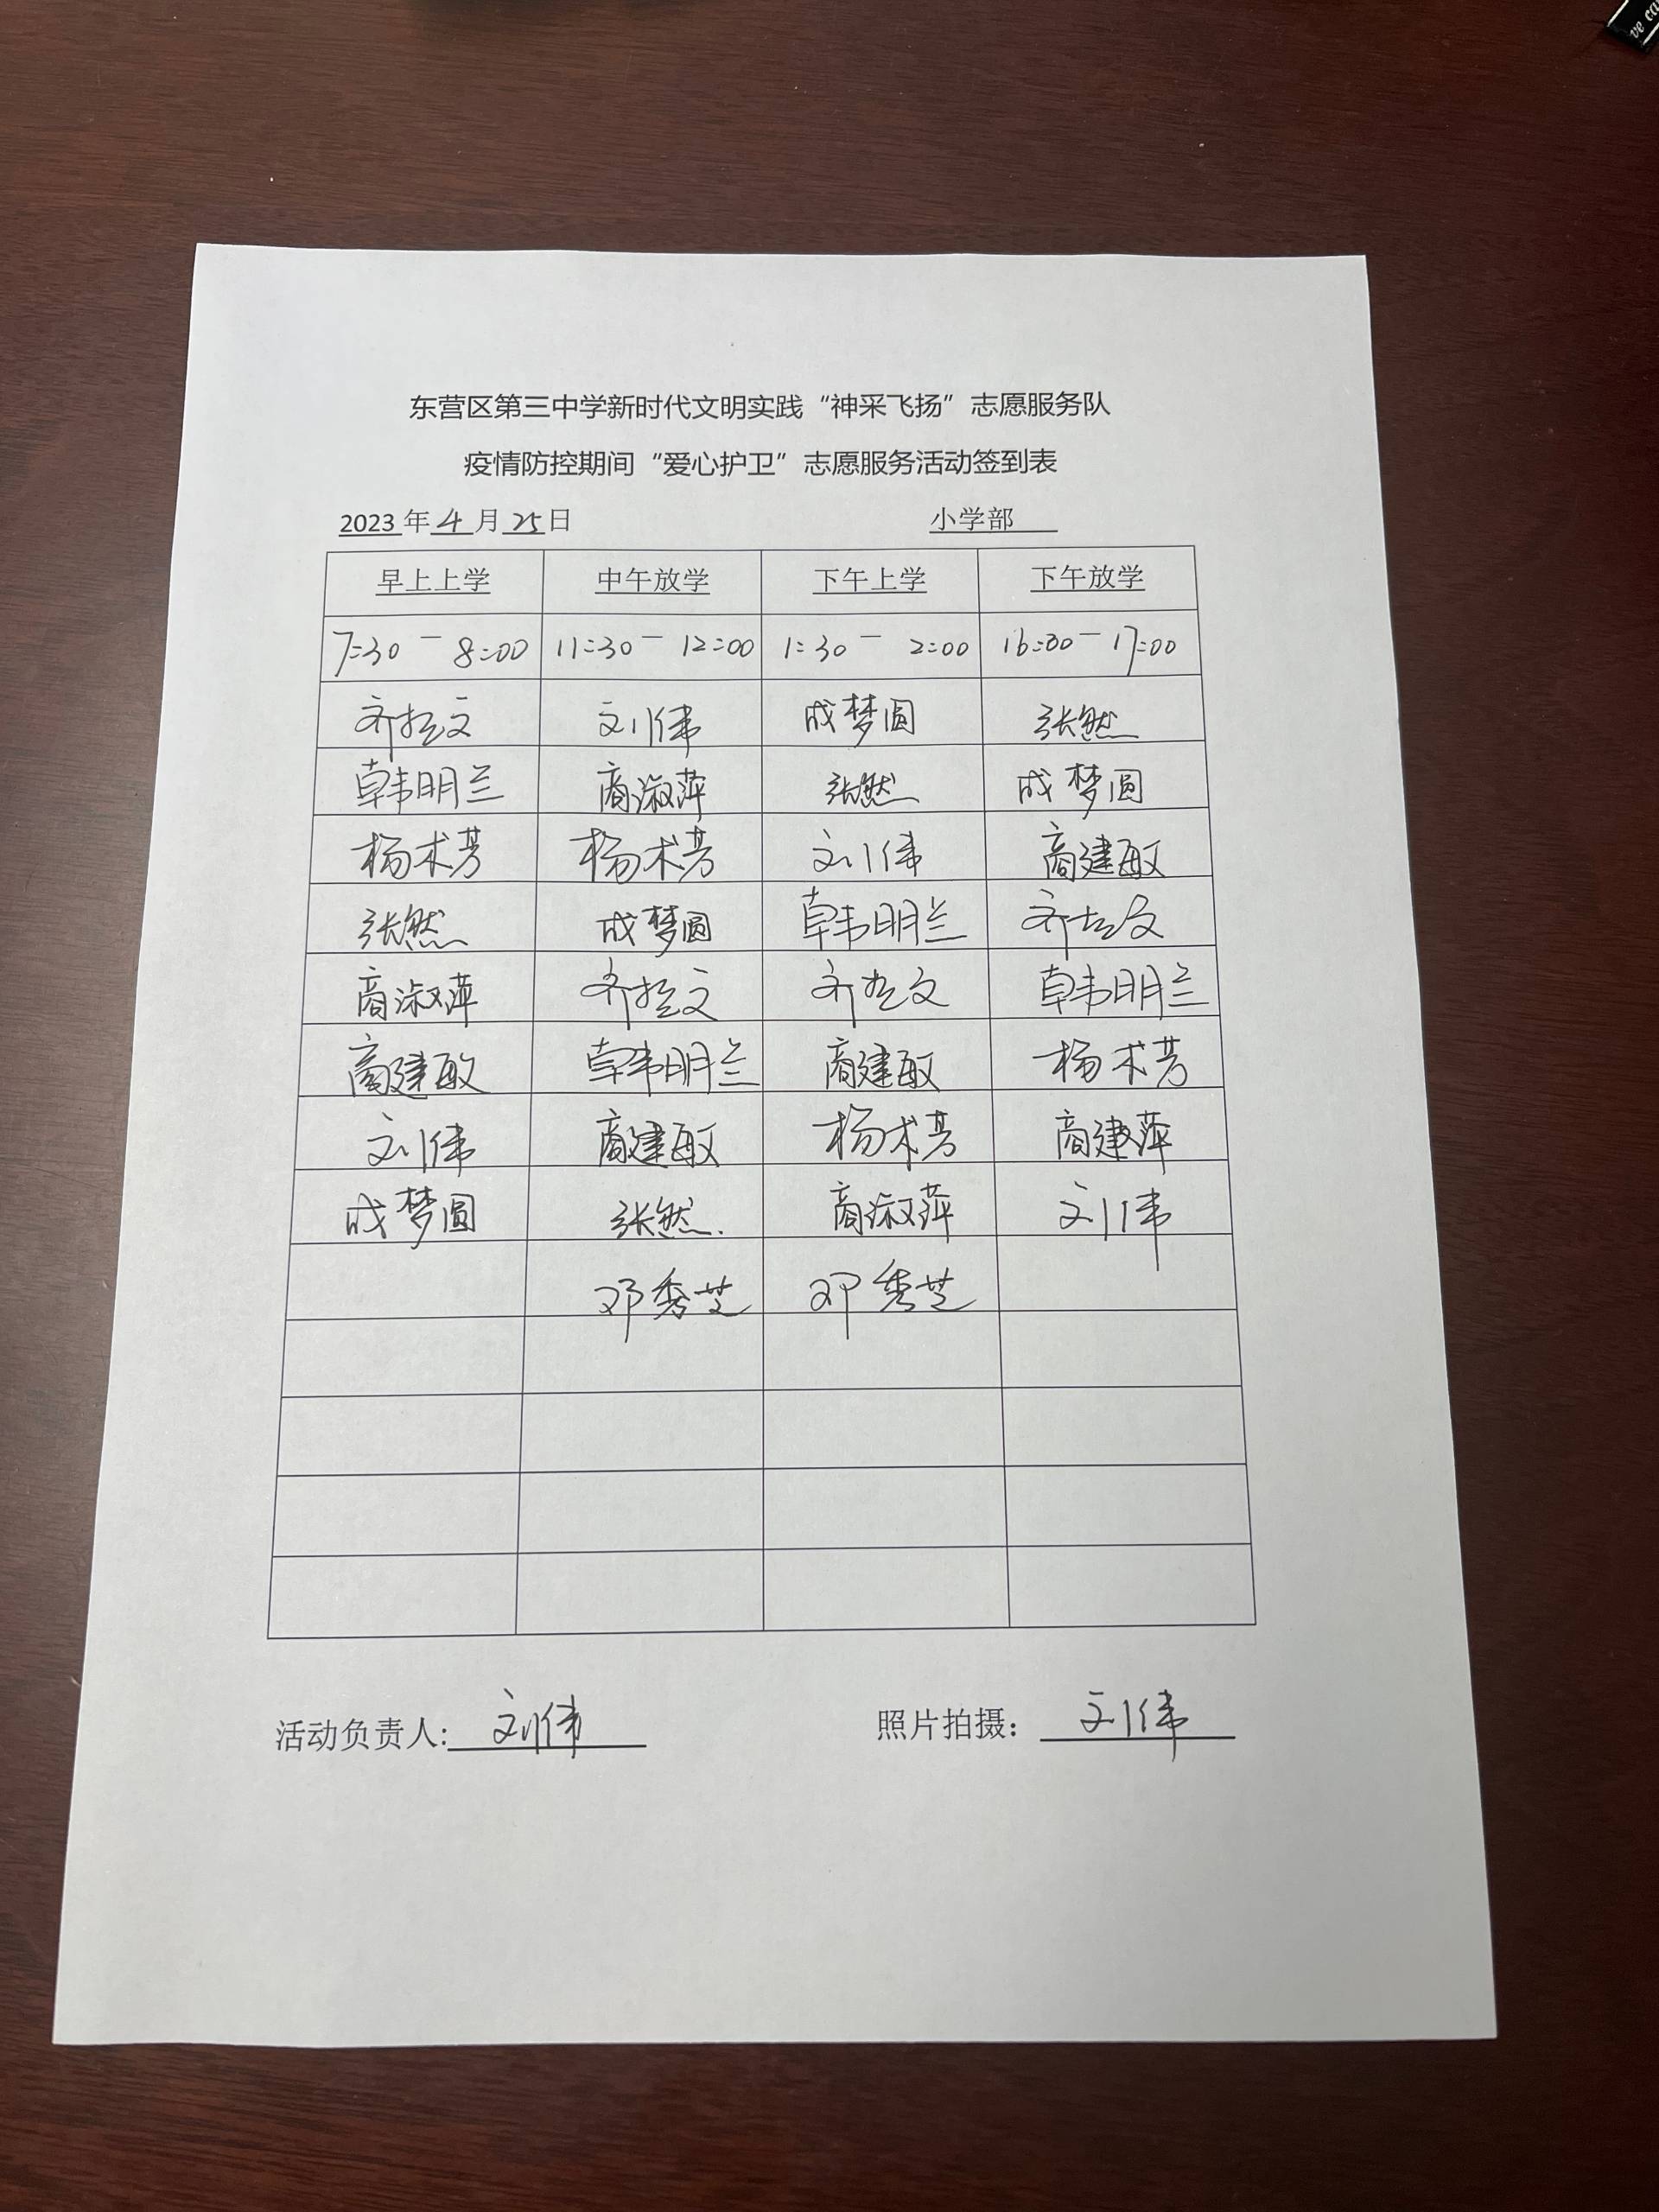 ve ca
东营区第三中学新时代文明实践“神采飞扬”志愿服务队
疫情防控期间“爱心护卫”志愿服务活动签到表
2023 年 4 月 25 日 小学部
早上上学 中午放学 下午上学 下午放学
7:30 — 8:00 11:30 — 12:00 1:30 — 2:00 16:30 — 17:00
刘伟 成梦圆 张然
韩明兰 商淑萍 张然 成梦圆
杨术芳 杨术芳 刘伟 商建敏
张然 成梦圆 韩明兰
商淑萍 韩明兰
商建敏 韩明兰 商建敏 杨术芳
刘伟 商建敏 杨术芳 商建萍
成梦圆 张然. 商淑萍 刘伟
邓秀芝 邓秀芝
活动负责人: 刘伟 照片拍摄: 刘伟